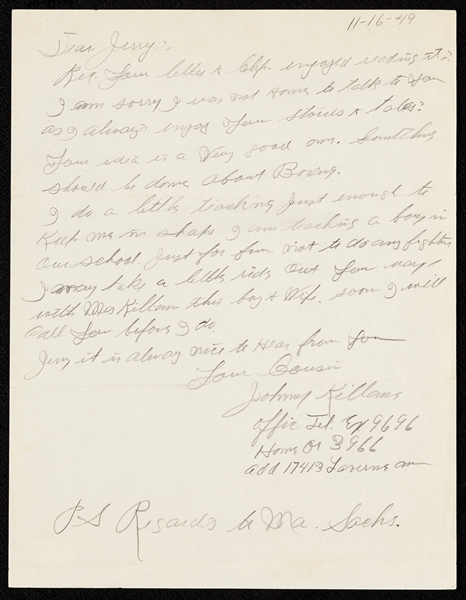 11-16-49
Dear Jerry:
Rec. Your letter & Clip. enjoyed reading it:
I am sorry I was not Home to talk to You
as I always enjoy Your stories & tales:
Your idea is a Very good one. Something
should be done about Boxing.
I do a little teaching Just enough to
Keep me in shape I am teaching a boy in
Our school. Just for fun not to do any fighting
I may take a little ride Out Your way
with Mrs Killam this boy & Wife. soon I will
Call You before I do
Jerry it is always nice to Hear from You
Your Cousin
Johnny Killane
Office Tel. Ex 9696
Home Or 3966
add 17413 Laverne ave
P-S Regards to Ma. Sachs.